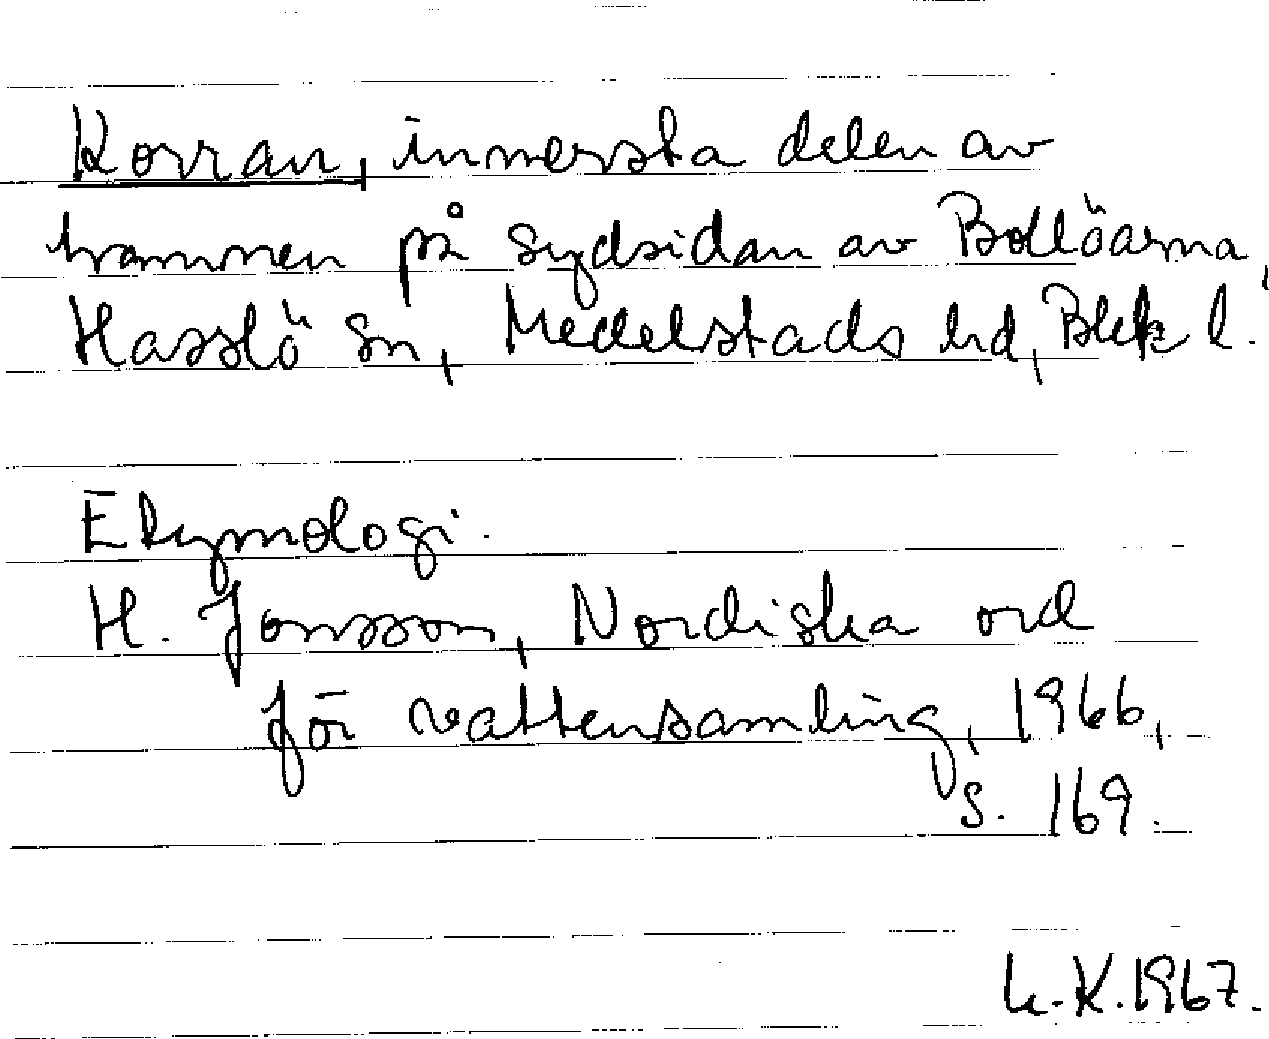 Korran, innersta delen av
hamnen på sydsidan av Bollöarna,
Hasslö sn, Medelstads hd, Blek l.
Etymologi.
H. Jonsson, Nordiska ord
för vattensamling, 1966,
s. 169.
K. 1967.